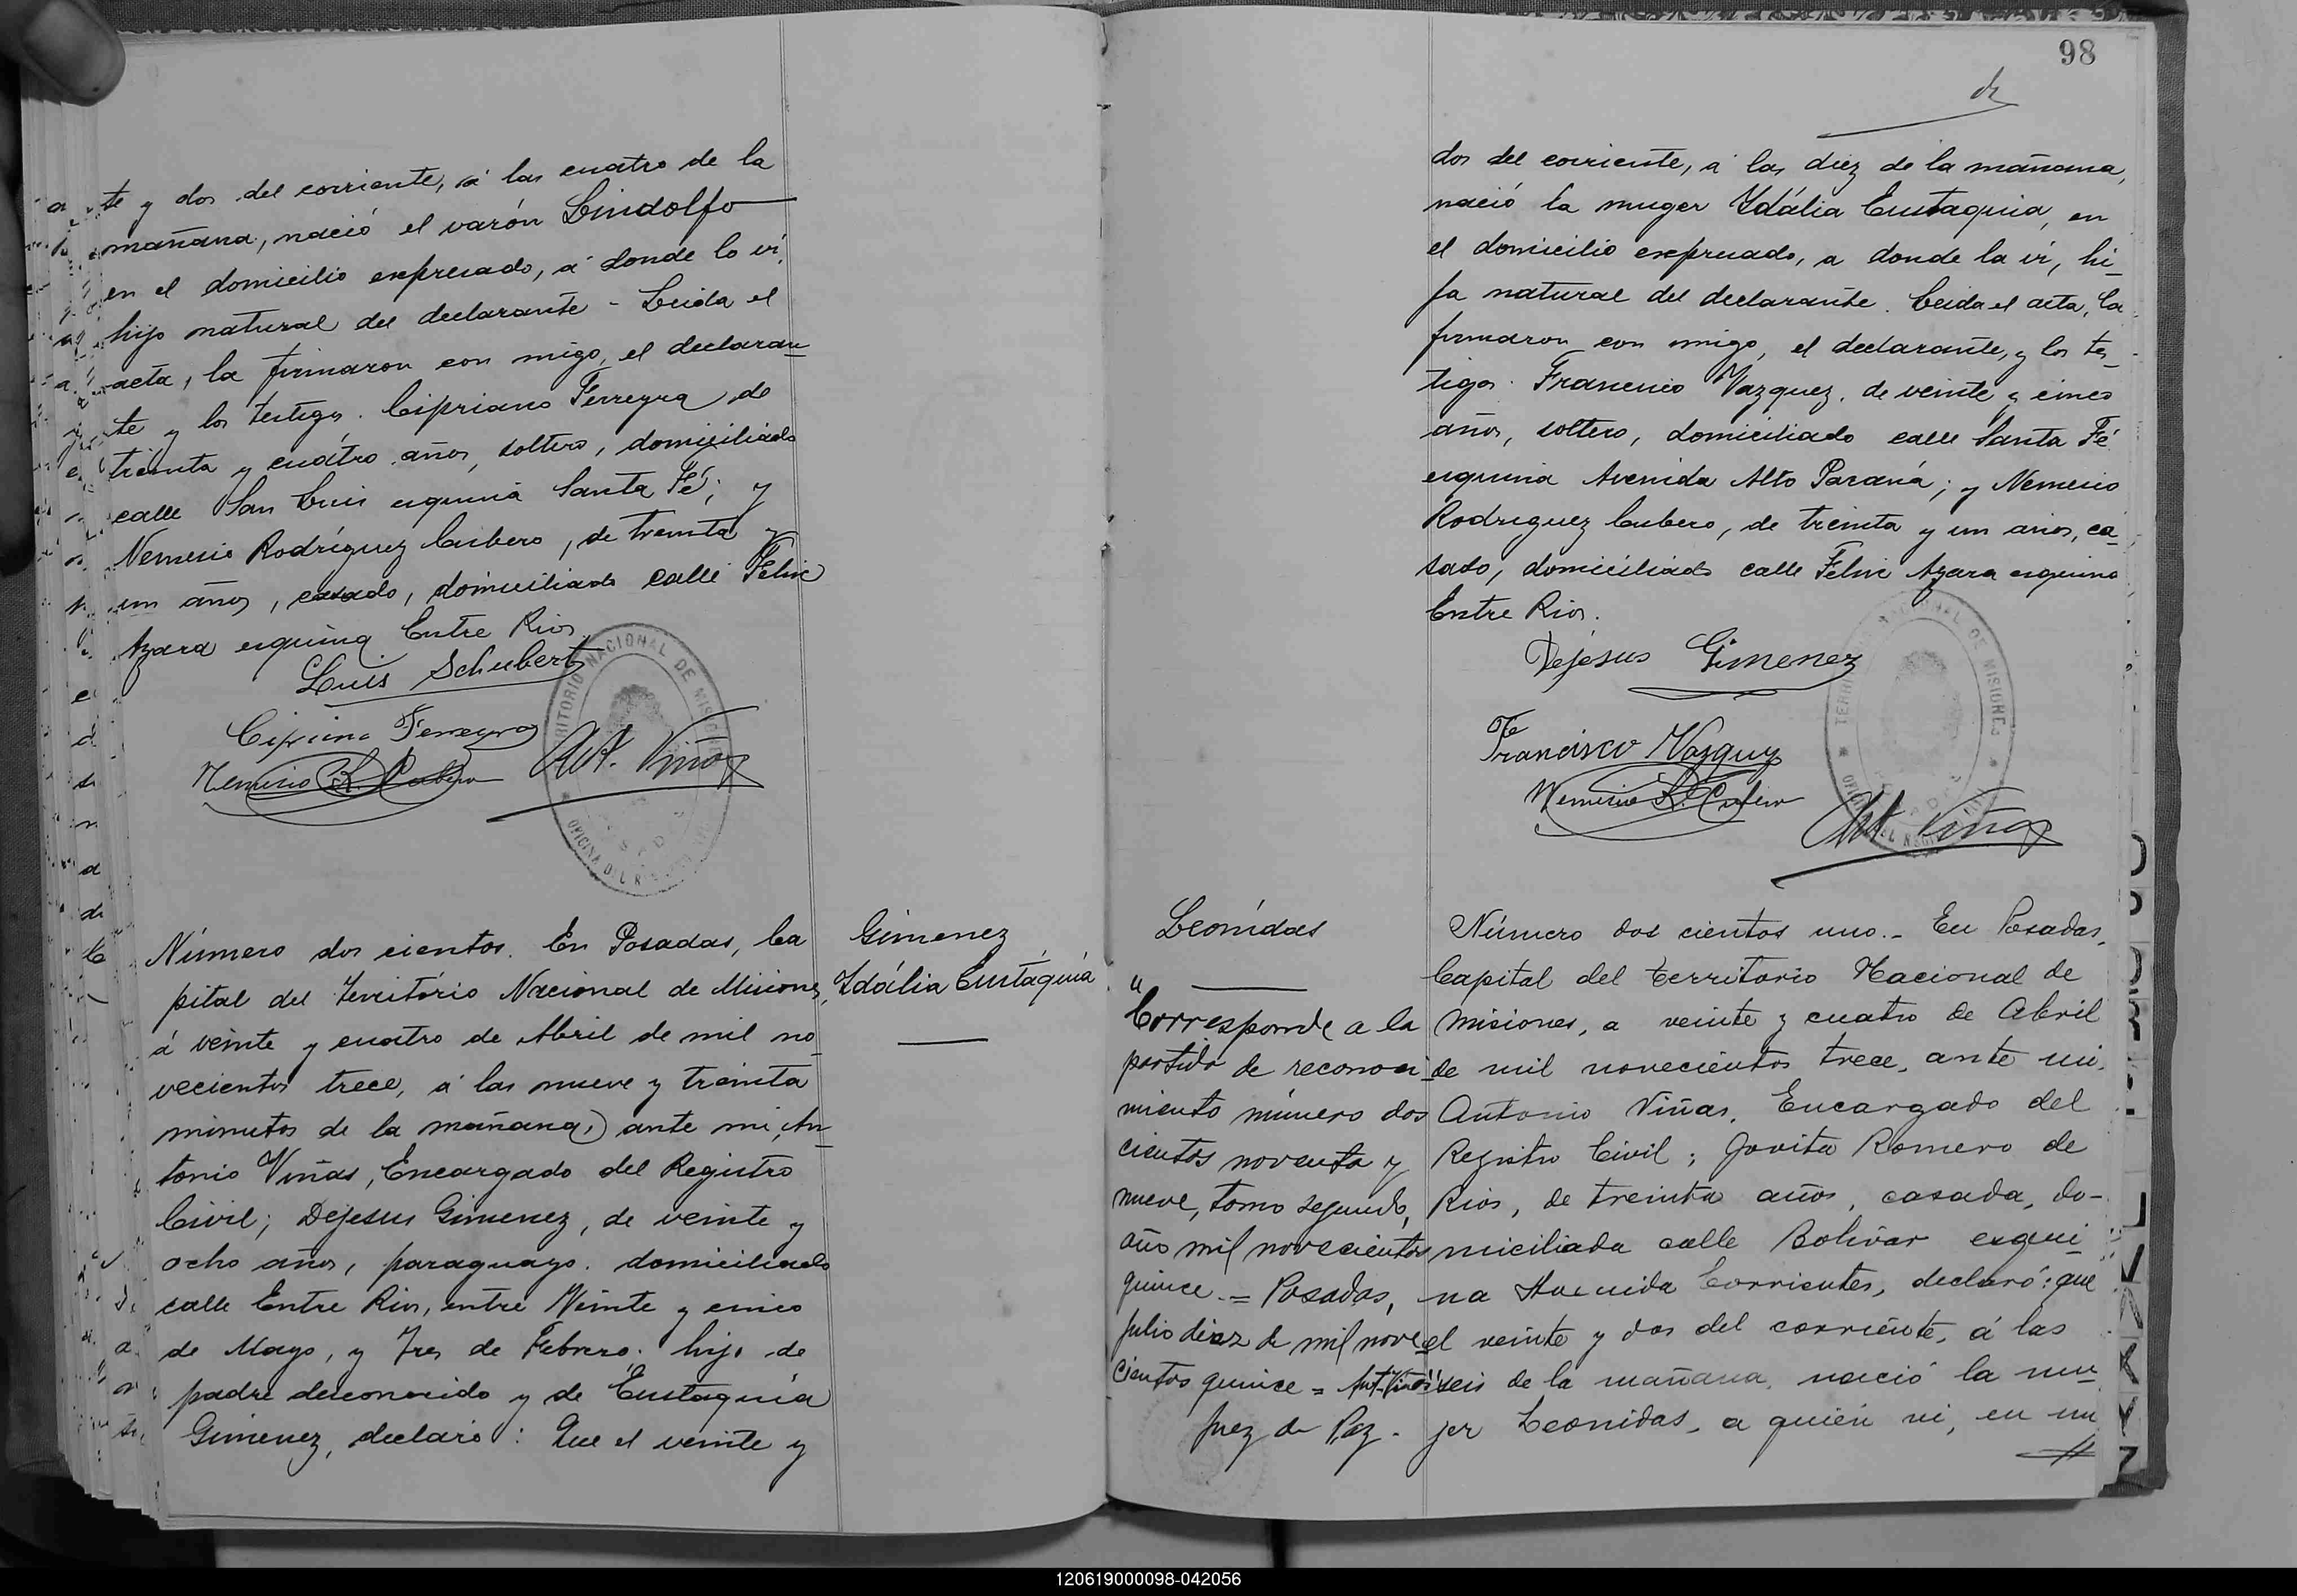 te y dos del corriente, á las cuatro de la
mañana, nació el varón Lindolfo
en el domicilio expresado, á donde lo ví,
hijo natural del declarante - Leida el
acta, la firmaron con migo, el declaran
te y los testigos. Cipriano Ferreyra de
treinta y cuátro años, soltero, domiciliado
calle San Luis esquina Santa Fé; y
Nemesio Rodríguez Cubero, de treinta y
un años, casado, domiciliado calle Felix
Azara esquina Entre Rios.
Luis Schubert
Cipriano Ferreyra
Nemesio R. Cubero
Ant. Viñas
TERRITORIO NACIONAL DE MISIONES
Número dos cientos. En Posadas, Ca
pital del Território Nacional de Misiones,
á veinte y cuatro de Abril de mil no_
vecientos trece, á las nueve y treinta
minutos de la mañana, ante mi, An_
tonio Viñas, Encargado del Registro
Civil; Dejesus Gimenez, de veinte y
ocho años, paraguayo. domiciliado
calle Entre Rios, entre Veinte y cinco
de Mayo, y Tres de Febrero. hijo de
padre desconocido y de Eustaquia
Gimenez, declaró: Que el veinte y
Gimenez,
Idália Eustáquia
98
dos del corriente, á las diez de la mañana,
nació la muger Idália Eustaquia, en
el domicilio expresado, a donde la ví, hi_
ja natural del declarante. Leida el acta, la
firmaron con migo, el declarante, y los tes_
tigos. Francisco Vazquez, de veinte y cinco
años, soltero, domiciliado calle Santa Fé
esquina Avenida Alto Paraná; y Nemesio
Rodriguez Cubero, de treinta y un años, ca_
sado, domiciliado calle Felix Azara esquina
Entre Rios.
Dejesus Gimenez
Francisco Vazquez
Nemesio R. Cubero
Ant Viñas
TERRITORIO NACIONAL DE MISIONES
Leonídas
"
Corresponde a la
partida de reconoci_
miento número dos
cientos noventa y
nueve, tomo segundo,
año mil novecientos
quince. = Posadas,
Julio diez de mil nove_
cientos quince = Ant. Viñas"
Juez de Paz.
Número dos cientos uno.- En Posadas,
Capital del territorio Nacional de
Misiones, a veinte y cuatro de Abril
de mil novecientos trece, ante mi,
Antonio Viñas, Encargado del
Registro Civil; Jovita Romero de
Rios, de treinta años, casada, do-
miciliada calle Bolivar esqui_
na Avenida Corrientes, declaró: que
el veinte y dos del corriente, á las
seis de la mañana, nació la mu_
jer Leonidas, a quién ví, en su
120619000098-042056